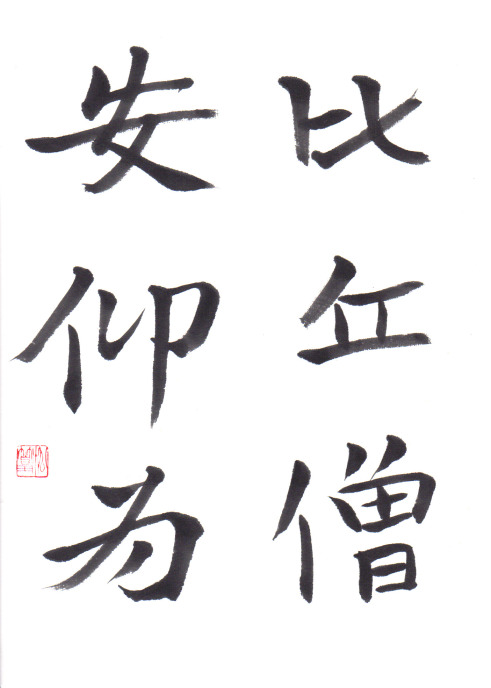 比丘僧
安仰为